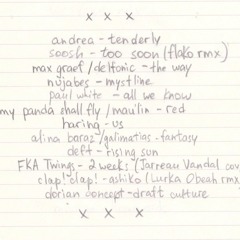 x x x
andrea - tenderly
soosh - too soon (flako rmx)
max graef / delfonic - the way
nujabes - mystline
paul white - all we know
my panda shall fly / mau'lin - red
haring - us
alina baraz / galimatias - fantasy
deft - rising sun
FKA Twings - 2 weeks / Jarreau Vandal cov
clap! clap! - ashiko (Lurka Obeah rmx
dorian concept - draft culture
x x x